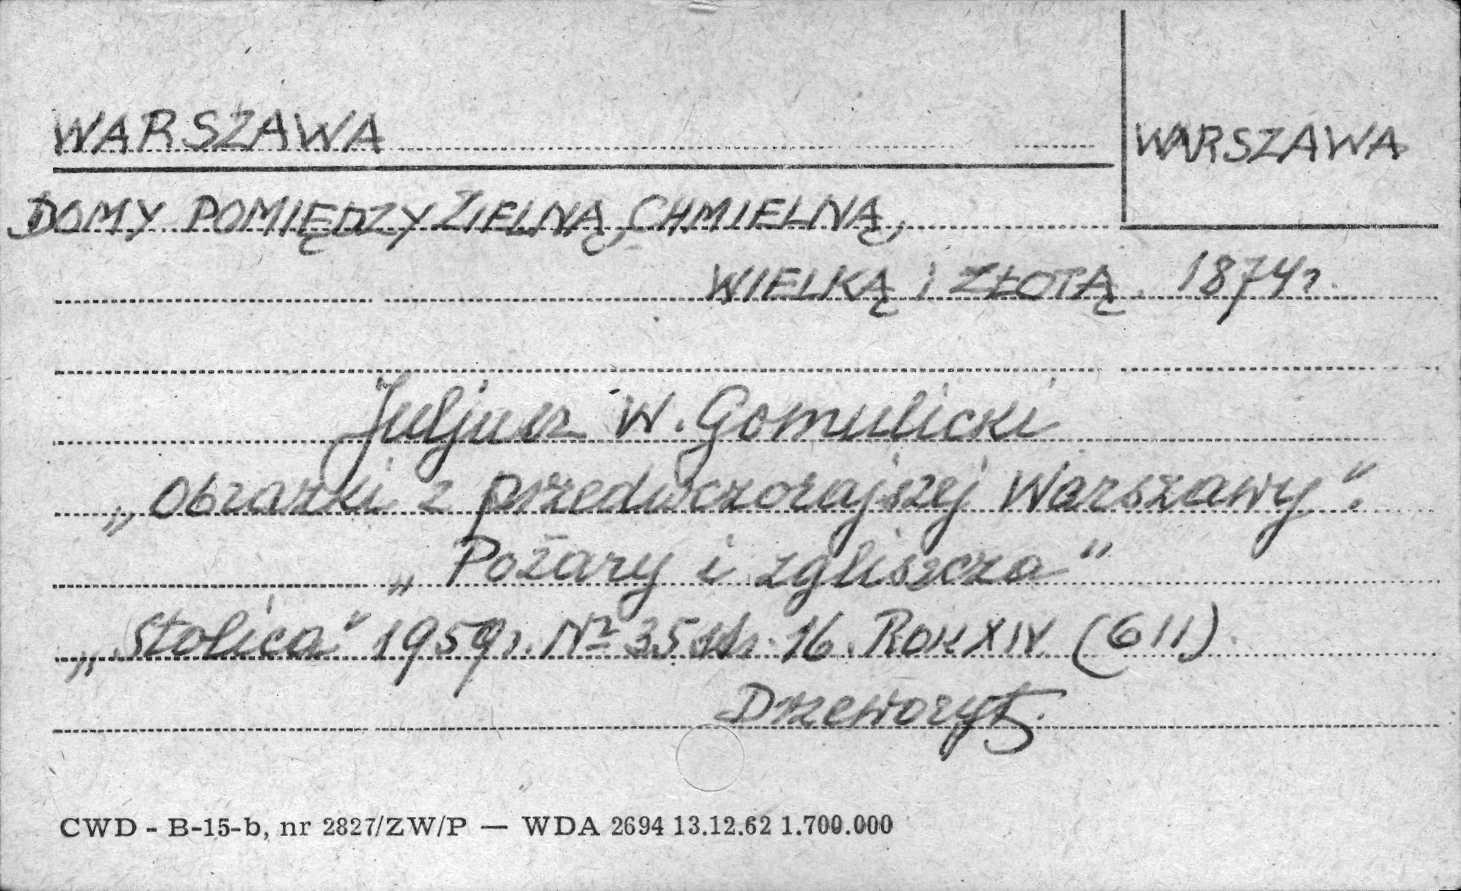 WARSZAWA
WARSZAWA
DOMY POMIĘDZY ZIELNĄ, CHMIELNĄ,
WIELKĄ I ZŁOTĄ. 1874r.
Juljusz W. Gomulicki
„Obrazki z przedwczorajszej Warszawy".
„Pożary i zgliszcza"
„Stolica" 1959r. Nº 35 str. 16. Rok XIV (611)
Drzeworyt.
CWD - B-15-b, nr 2827/ZW/P — WDA 2694 13.12.62 1.700.000